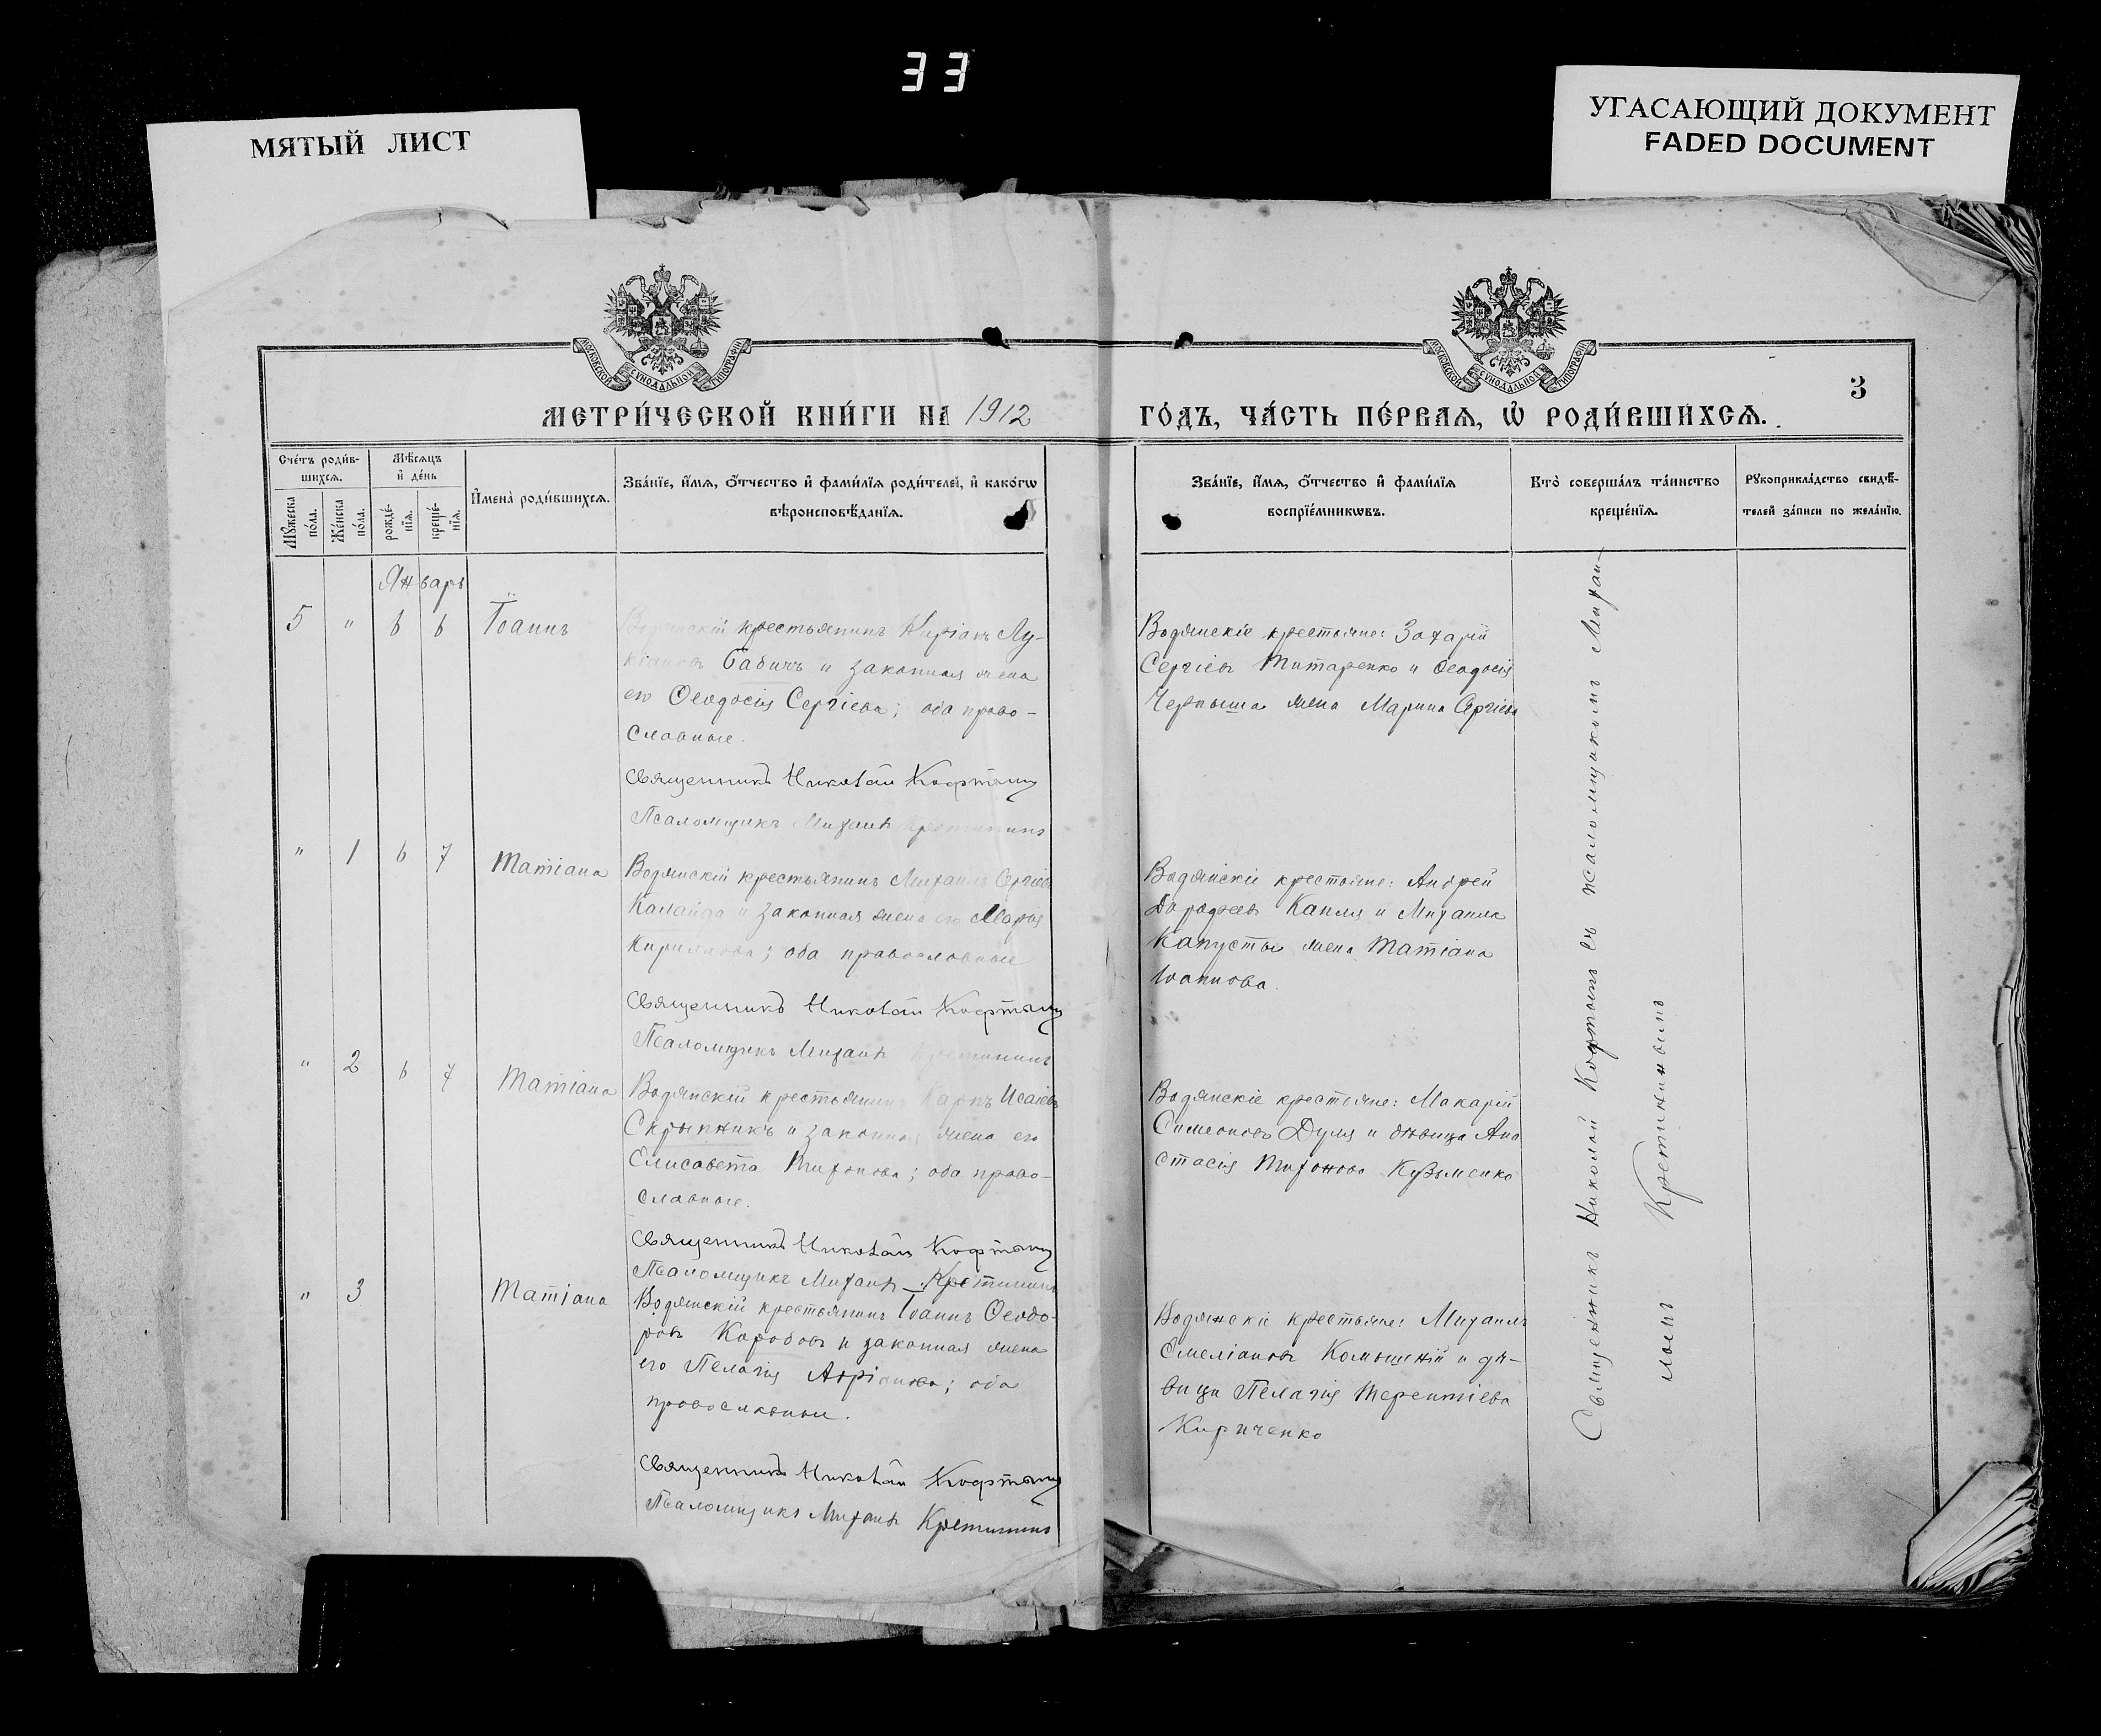 33
МЯТЫЙ ЛИСТ
УГАСАЮЩИЙ ДОКУМЕНТ
FADED DOCUMENT
МОСКОВСКОЙ СѴНОДАЛЬНОЙ ТИПОГРАФІИ
МОСКОВСКОЙ СѴНОДАЛЬНОЙ ТИПОГРАФІИ
3
МЕТРИ́ЧЕСКОЙ КНИ́ГИ НА 1912 ГО́ДЪ, ЧА́СТЬ ПЕ́РВАЯ, Ѡ҆ РОДИ́ВШИХСЯ.
Сче́тъ роди́в-
шихся.
Мѣ́сяцъ
и҆ де́нь
Мꙋ́жеска
по́ла.
Же́нска
по́ла.
рожде́-
нїя.
креще́-
нїя.
И҆мена̀ роди́вшихся.
Зва́нїе, и҆́мя, ѻ҆́тчество и҆ фами́лїя роди́телей, и҆ како́гѡ
вѣроисповѣ́данїя.
Зва́нїе, и҆́мя, ѻ҆́тчество и҆ фами́лїя
воспрїе́мникѡвъ.
Кто̀ соверша́лъ та́инство
креще́нїя.
Рꙋкоприкла́дство свидѣ́-
телей за́писи по жела́нїю.
Январь
5 " 6 6 Іоаннъ
Водянскій крестьянинъ Киріакъ Лу-
кіановъ Бабичъ и законная жена
его Ѳеодосія Сергіева; оба право-
славные.
Священникъ Николай Кофтынъ
Псаломщикъ Михаилъ Кретининъ
Водянскіе крестьяне: Захарій
Сергіевъ Титаренко и Ѳеодосія
Черныша жена Марина Сергіева
" 1 6 7 Татіана
Водянскій крестьянинъ Михаилъ Сергіевъ
Калайда и законная жена его Марія
Кириллова; оба православные
Священникъ Николай Кофтынъ
Псаломщикъ Михаилъ Кретининъ
Водянскіе крестьяне: Андрей
Дороѳеевъ Капля и Михаила
Капусты жена Татіана
Іоаннова.
" 2 6 7 Татіана
Водянскій крестьянинъ Карпъ Исаіевъ
Скрыпникъ и законная жена его
Елисавета Тихонова; оба право-
славные.
Священникъ Николай Кофтынъ
Псаломщикъ Михаилъ Кретининъ
Водянскіе крестьяне: Макарій
Симеоновъ Дуля и дѣвица Ана
стасія Тихонова Кузьменко
" 3 Татіана
Водянскій крестьянинъ Іоаннъ Ѳеодо-
ровъ Коробовъ и законная жена
его Пелагія Адріанова; оба
православные.
Священникъ Николай Кофтынъ
Псаломщикъ Михаилъ Кретининъ
Водянскіе крестьяне: Михаилъ
Емеліановъ Комышній и дѣ-
вица Пелагія Терентіева
Кириченко
Священникъ Николай Кофтынъ съ псаломщикомъ Михаи-
ломъ Кретининымъ